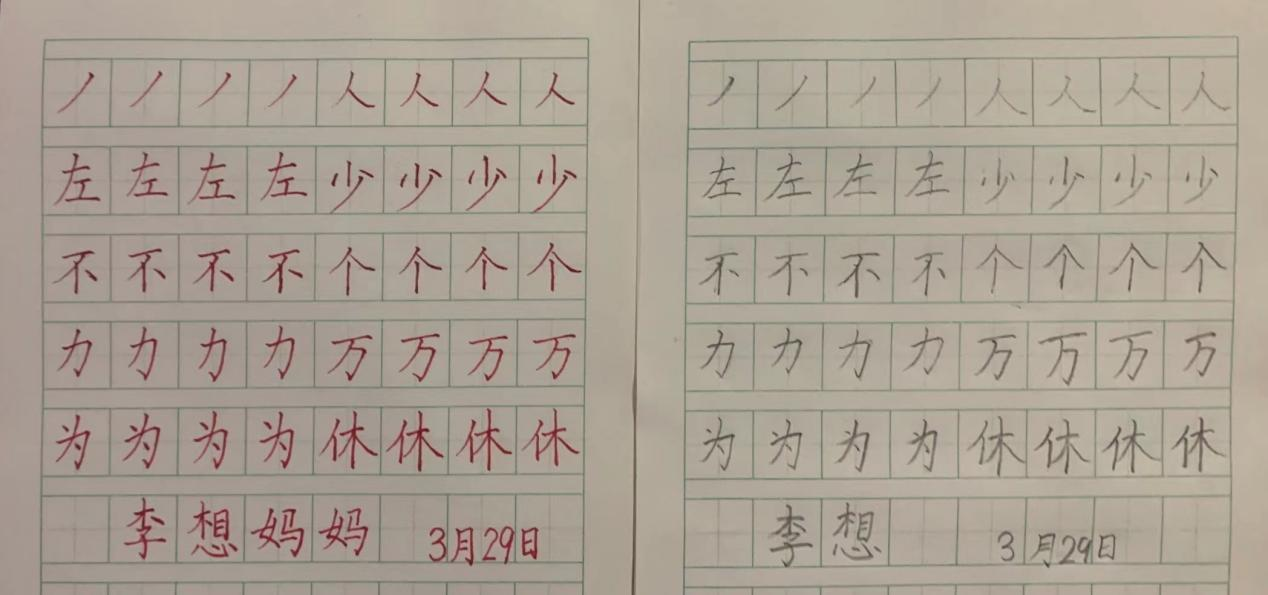 丿丿丿丿人人人人
左左左左少少少少
不不不不个个个个
力力力力万万万万
为为为为休休休休
李想妈妈 3月29日
丿丿丿丿人人人人
左左左左少少少少
不不不不个个个个
力力力力万万万万
为为为为休休休休
李想 3月29日